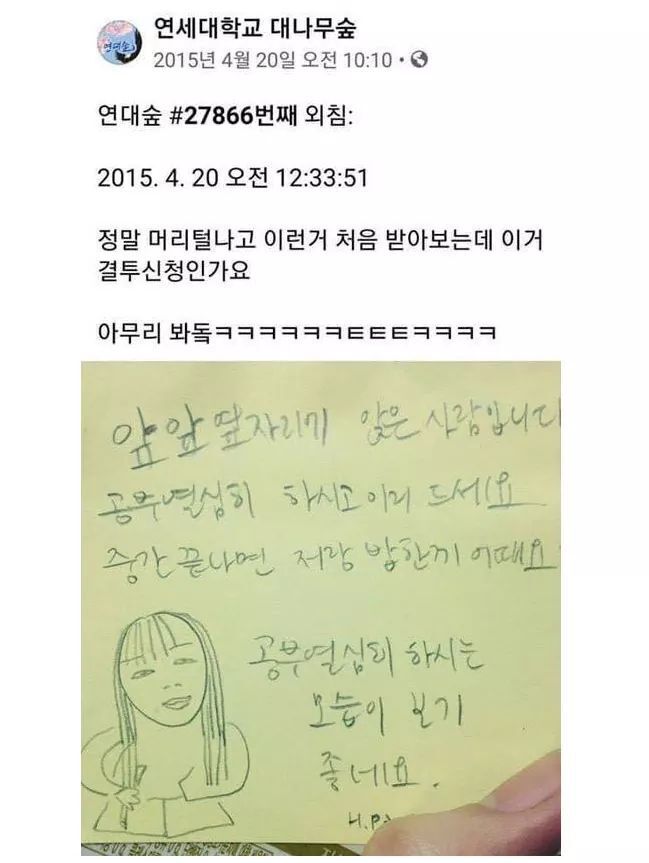 연세대학교 대나무숲
2015년 4월 20일 오전 10:10 ·
연대숲 #27866번째 외침:
2015. 4. 20 오전 12:33:51
정말 머리털나고 이런거 처음 받아보는데 이거
결투신청인가요
아무리 봐돜ㅋㅋㅋㅋㅋㅋㅌㅌㅌㅋㅋㅋㅋ
앞앞옆자리에 앉은 사람입니다
공부열심히 하시고 이거 드세요
중간 끝나면 저랑 밥한끼 어때요
공부열심히 하시는
모습이 보기
좋네요.
H.P